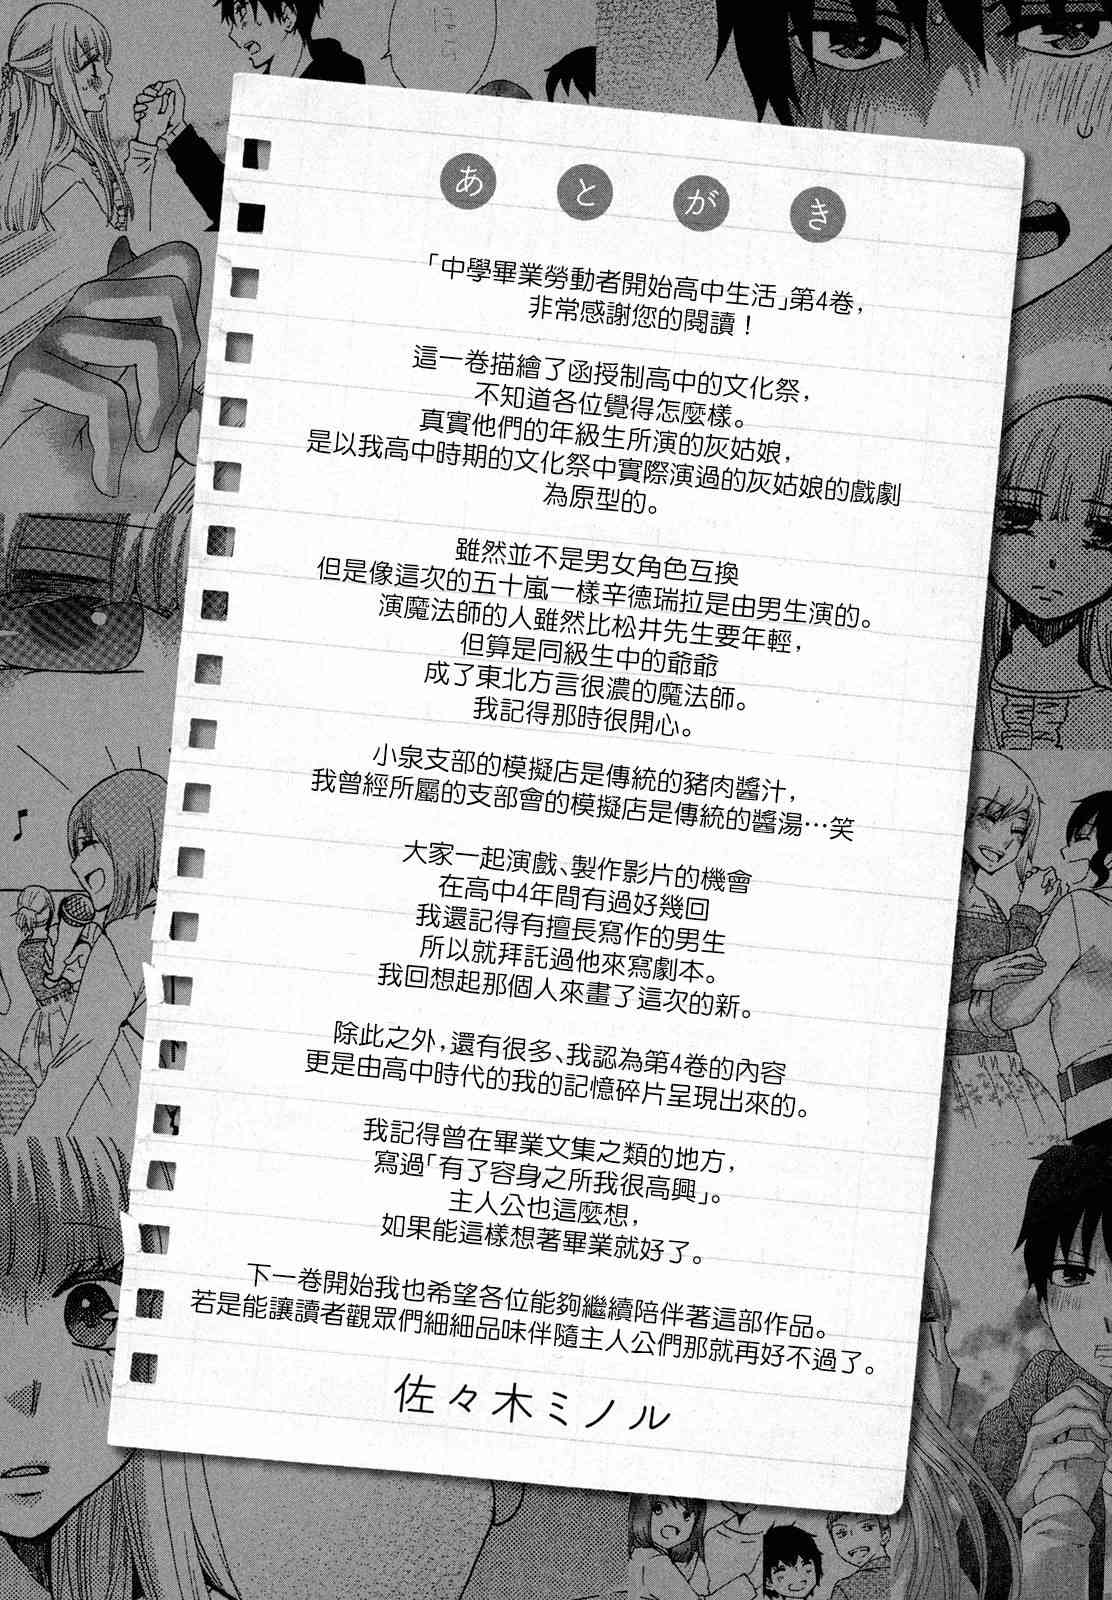 あとがき
「中學畢業勞動者開始高中生活」第4卷，
非常感謝您的閱讀！
這一卷描繪了函授制高中的文化祭，
不知道各位覺得怎麼樣。
真實他們的年級生所演的灰姑娘，
是以我高中時期的文化祭中實際演過的灰姑娘的戲劇
為原型的。
雖然並不是男女角色互換
但是像這次的五十嵐一樣辛德瑞拉是由男生演的。
演魔法師的人雖然比松井先生要年輕，
但算是同級生中的爺爺
成了東北方言很濃的魔法師。
我記得那時很開心。
小泉支部的模擬店是傳統的豬肉醬汁，
我曾經所屬的支部會的模擬店是傳統的醬湯…笑
大家一起演戲、製作影片的機會
在高中4年間有過好幾回
我還記得有擅長寫作的男生
所以就拜託過他來寫劇本。
我回想起那個人來畫了這次的新。
除此之外，還有很多、我認為第4卷的內容
更是由高中時代的我的記憶碎片呈現出來的。
我記得曾在畢業文集之類的地方，
寫過「有了容身之所我很高興」。
主人公也這麼想，
如果能這樣想著畢業就好了。
下一卷開始我也希望各位能夠繼續陪伴著這部作品。
若是能讓讀者觀眾們細細品味伴隨主人公們那就再好不過了。
佐々木ミノル